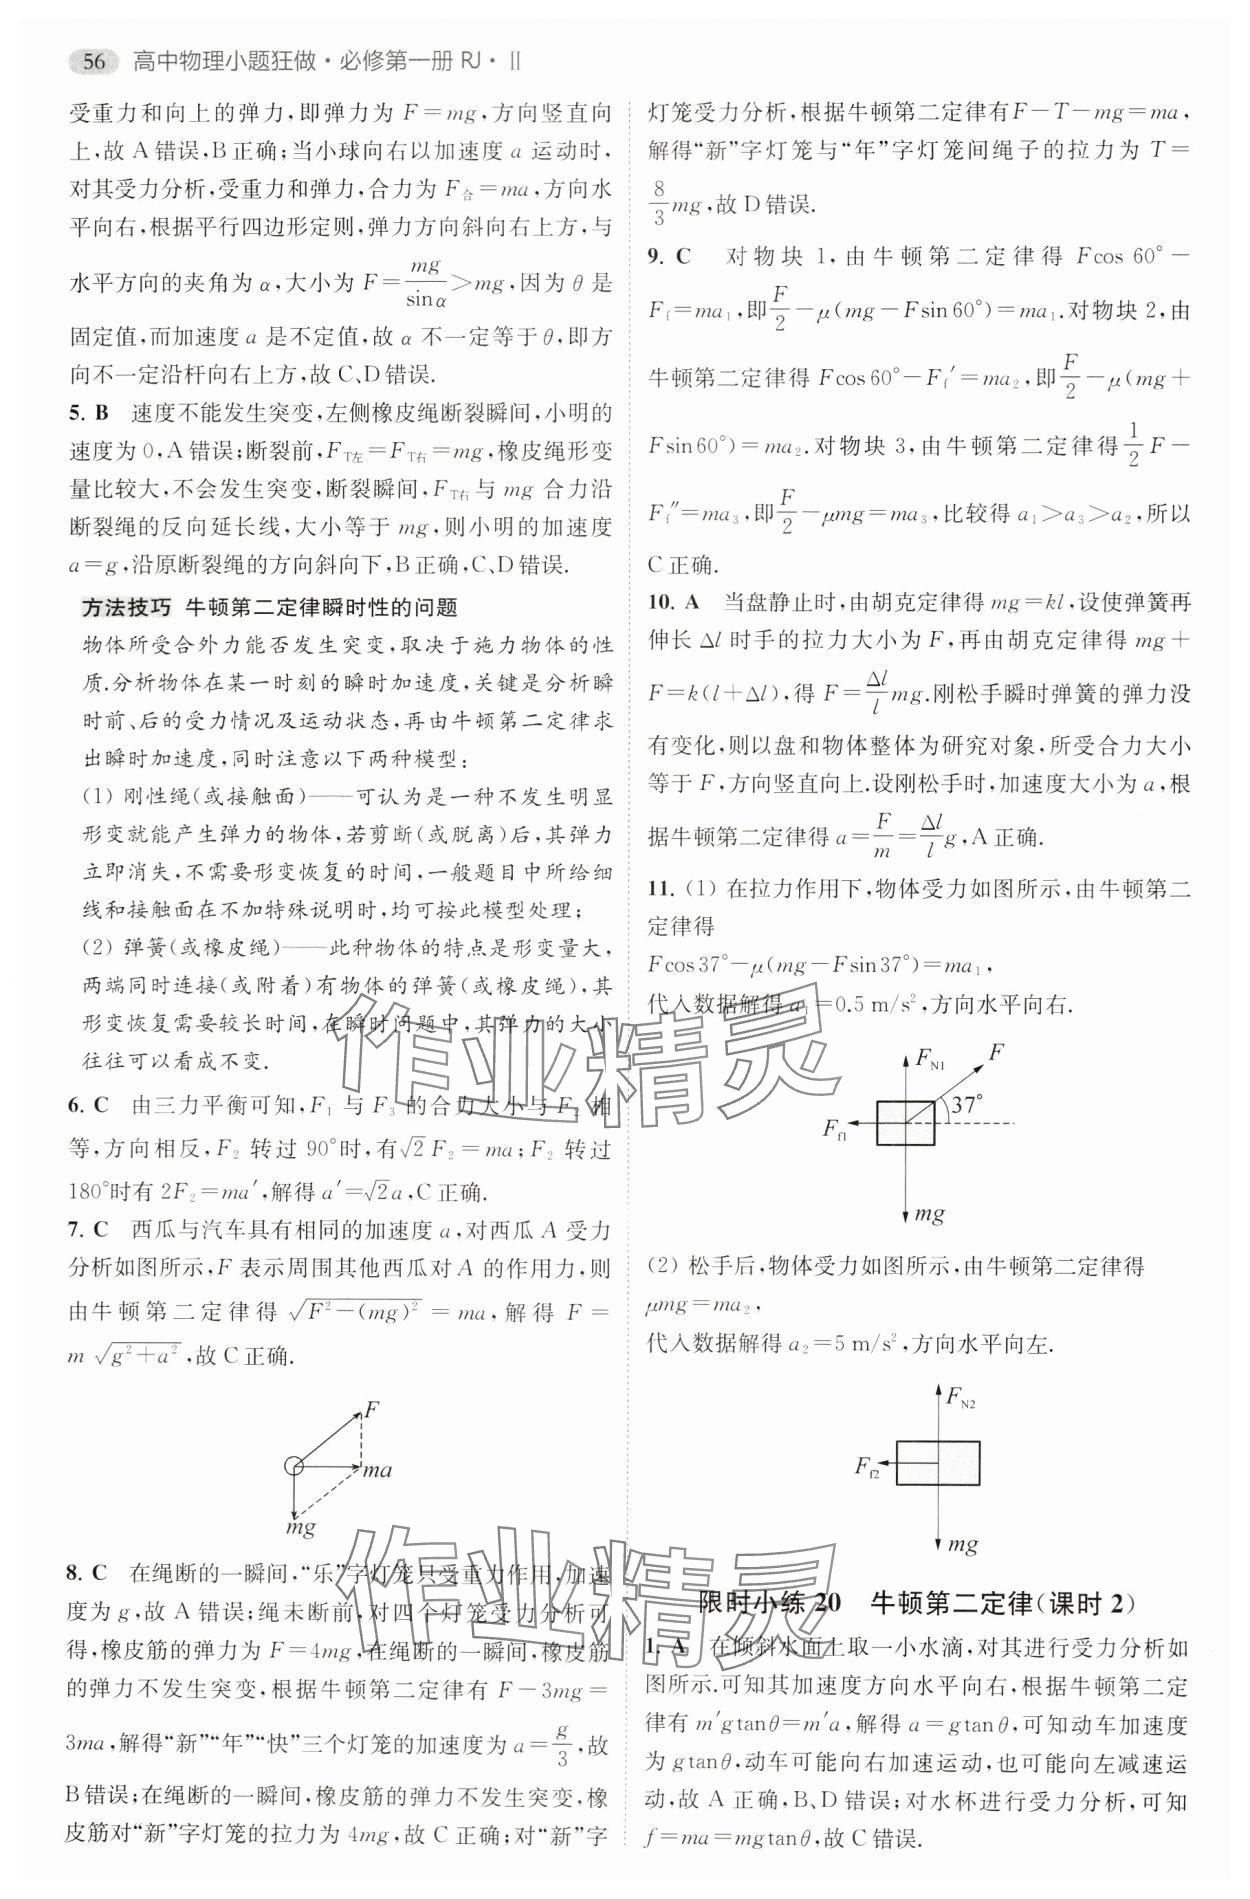 56 高中物理小题狂做·必修第一册 RJ·Ⅱ
受重力和向上的弹力,即弹力为 F=mg,方向竖直向
上,故 A 错误,B 正确;当小球向右以加速度 a 运动时,
对其受力分析,受重力和弹力,合力为 F合=ma,方向水
平向右,根据平行四边形定则,弹力方向斜向右上方,与
水平方向的夹角为 α,大小为 F=mg/sinα>mg,因为 θ 是
固定值,而加速度 a 是不定值,故 α 不一定等于 θ,即方
向不一定沿杆向右上方,故 C、D 错误.
5. B 速度不能发生突变,左侧橡皮绳断裂瞬间,小明的
速度为 0,A 错误;断裂前,F_T左=F_T右=mg,橡皮绳形变
量比较大,不会发生突变,断裂瞬间,F_T右与 mg 合力沿
断裂绳的反向延长线,大小等于 mg,则小明的加速度
a=g,沿原断裂绳的方向斜向下,B 正确,C、D 错误.
方法技巧 牛顿第二定律瞬时性的问题
物体所受合外力能否发生突变,取决于施力物体的性
质.分析物体在某一时刻的瞬时加速度,关键是分析瞬
时前、后的受力情况及运动状态,再由牛顿第二定律求
出瞬时加速度,同时注意以下两种模型:
(1) 刚性绳(或接触面)——可认为是一种不发生明显
形变就能产生弹力的物体,若剪断(或脱离)后,其弹力
立即消失,不需要形变恢复的时间,一般题目中所给细
线和接触面在不加特殊说明时,均可按此模型处理;
(2) 弹簧(或橡皮绳)——此种物体的特点是形变量大,
两端同时连接(或附着)有物体的弹簧(或橡皮绳),其
形变恢复需要较长时间,在瞬时问题中,其弹力的大小
往往可以看成不变.
6. C 由三力平衡可知,F₁ 与 F₃ 的合力大小与 F₂ 相
等,方向相反,F₂ 转过 90°时,有√2F₂=ma;F₂ 转过
180°时有 2F₂=ma′,解得 a′=√2a,C 正确.
7. C 西瓜与汽车具有相同的加速度 a,对西瓜 A 受力
分析如图所示,F 表示周围其他西瓜对 A 的作用力,则
由牛顿第二定律得 √(F²-(mg)²) = ma, 解得 F=
m √(g²+a²),故 C 正确.
F
ma
mg
8. C 在绳断的一瞬间,“乐”字灯笼只受重力作用,加速
度为 g,故 A 错误;绳未断前,对四个灯笼受力分析可
得,橡皮筋的弹力为 F=4mg,在绳断的一瞬间,橡皮筋
的弹力不发生突变,根据牛顿第二定律有 F-3mg=
3ma,解得“新”“年”“快”三个灯笼的加速度为 a=g/3,故
B 错误;在绳断的一瞬间,橡皮筋的弹力不发生突变,橡
皮筋对“新”字灯笼的拉力为 4mg,故 C 正确;对“新”字
灯笼受力分析,根据牛顿第二定律有F-T-mg=ma,
解得“新”字灯笼与“年”字灯笼间绳子的拉力为 T=
8/3 mg,故 D 错误.
9. C 对物块 1,由牛顿第二定律得 Fcos 60°-
F_f=ma₁,即F/2-μ(mg-Fsin60°)=ma₁.对物块 2,由
牛顿第二定律得 Fcos60°-F_f′=ma₂,即F/2-μ(mg+
Fsin60°)=ma₂.对物块 3,由牛顿第二定律得1/2F-
F_f″=ma₃,即F/2-μmg=ma₃,比较得 a₁>a₃>a₂,所以
C 正确.
10. A 当盘静止时,由胡克定律得 mg=kl,设使弹簧再
伸长 Δl 时手的拉力大小为 F,再由胡克定律得 mg+
F=k(l+Δl),得 F=Δl/l mg.刚松手瞬时弹簧的弹力没
有变化,则以盘和物体整体为研究对象,所受合力大小
等于 F,方向竖直向上.设刚松手时,加速度大小为 a,根
据牛顿第二定律得 a=F/m=Δl/l g,A 正确.
11. (1) 在拉力作用下,物体受力如图所示,由牛顿第二
定律得
Fcos37°-μ(mg-Fsin37°)=ma₁,
代入数据解得 a₁=0.5 m/s²,方向水平向右.
F_N1
F
37°
F_f1
mg
(2) 松手后,物体受力如图所示,由牛顿第二定律得
μmg=ma₂,
代入数据解得 a₂=5 m/s²,方向水平向左.
F_N2
F_f2
mg
限时小练 20 牛顿第二定律(课时 2)
1. A 在倾斜水面上取一小水滴,对其进行受力分析如
图所示.可知其加速度方向水平向右,根据牛顿第二定
律有 m′gtanθ=m′a,解得 a=gtanθ,可知动车加速度
为 gtanθ,动车可能向右加速运动,也可能向左减速运
动,故 A 正确,B、D 错误;对水杯进行受力分析,可知
f=ma=mgtanθ,故 C 错误.
作业精灵
作业精灵